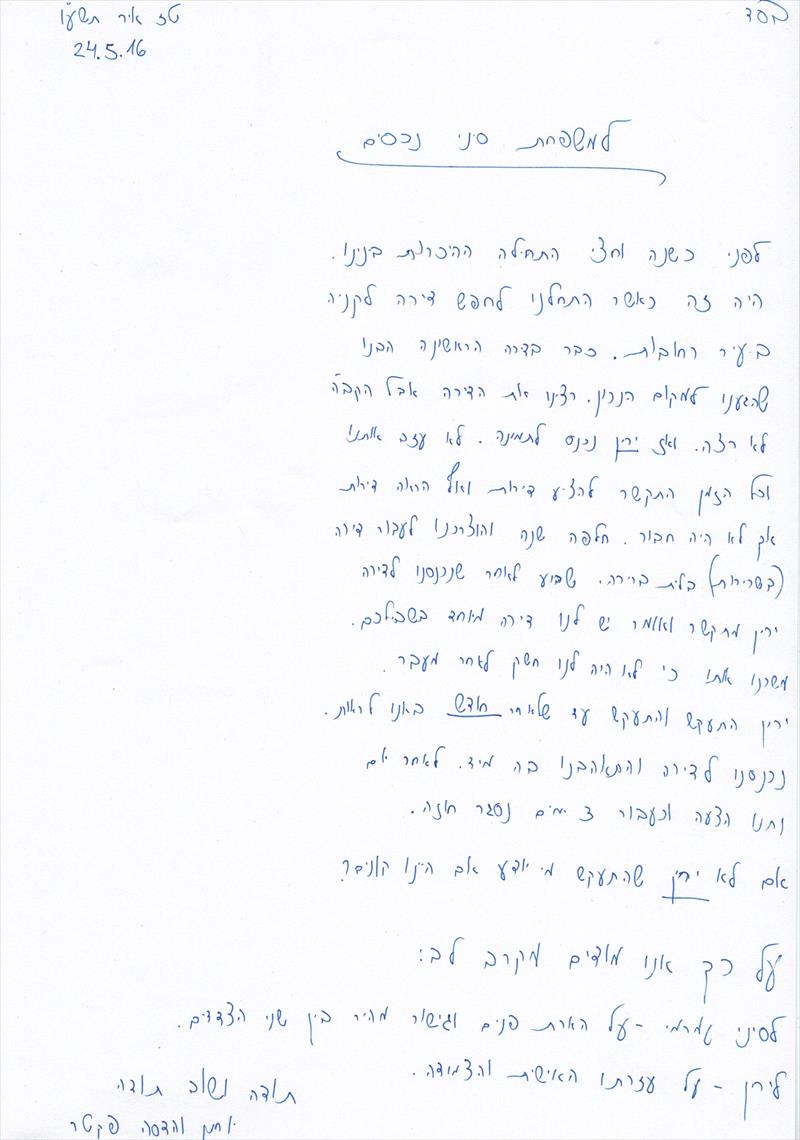 בסד
טז אייר תשע"ו
24.5.16
למשפחת סיני נכסים
לפני כשנה וחצי התחילה ההיכרות בנינו.
היה זה כאשר התחלנו לחפש דירה לקניה
בעיר רחובות. כבר בדירה הראשינה הבנו
שהגענו למקום הנכון. רצינו את הדירה אבל הקב"ה
לא רצה. ואז ירין נכנס לתמונה. לא עזב אותנו
וכל הזמן התקשר להציע דירות ואף הראה דירות
אך לא היה חבור. חלפה שנה והוצרכנו לעבור דירה
(בשכירות) בלית ברירה. שבוע לאחר שנכנסנו לדירה
ירין מתקשר ואומר יש לנו דירה מיוחד בשבילכם.
משכנו אותו כי לא היה לנו חשק לאחר מעבר.
ירין התעקש והתעקש עד שלאחר חודש באנו לראות.
נכנסנו לדירה והתאהבנו בה מיד. לאחר יום
נתנו הצעה וכעבור 3 ימים נסגר חוזה.
אם לא ירין שהתעקש מי יודע אם היינו קונים?
על כך אנו מודים מקרב לב:
לסיני עמרמי - על הארת פנים וגישור מהיר בין שני הצדדים.
לירין - על עזרתו האישית והצמודה.
תודה ושוב תודה
והדסה פקטר